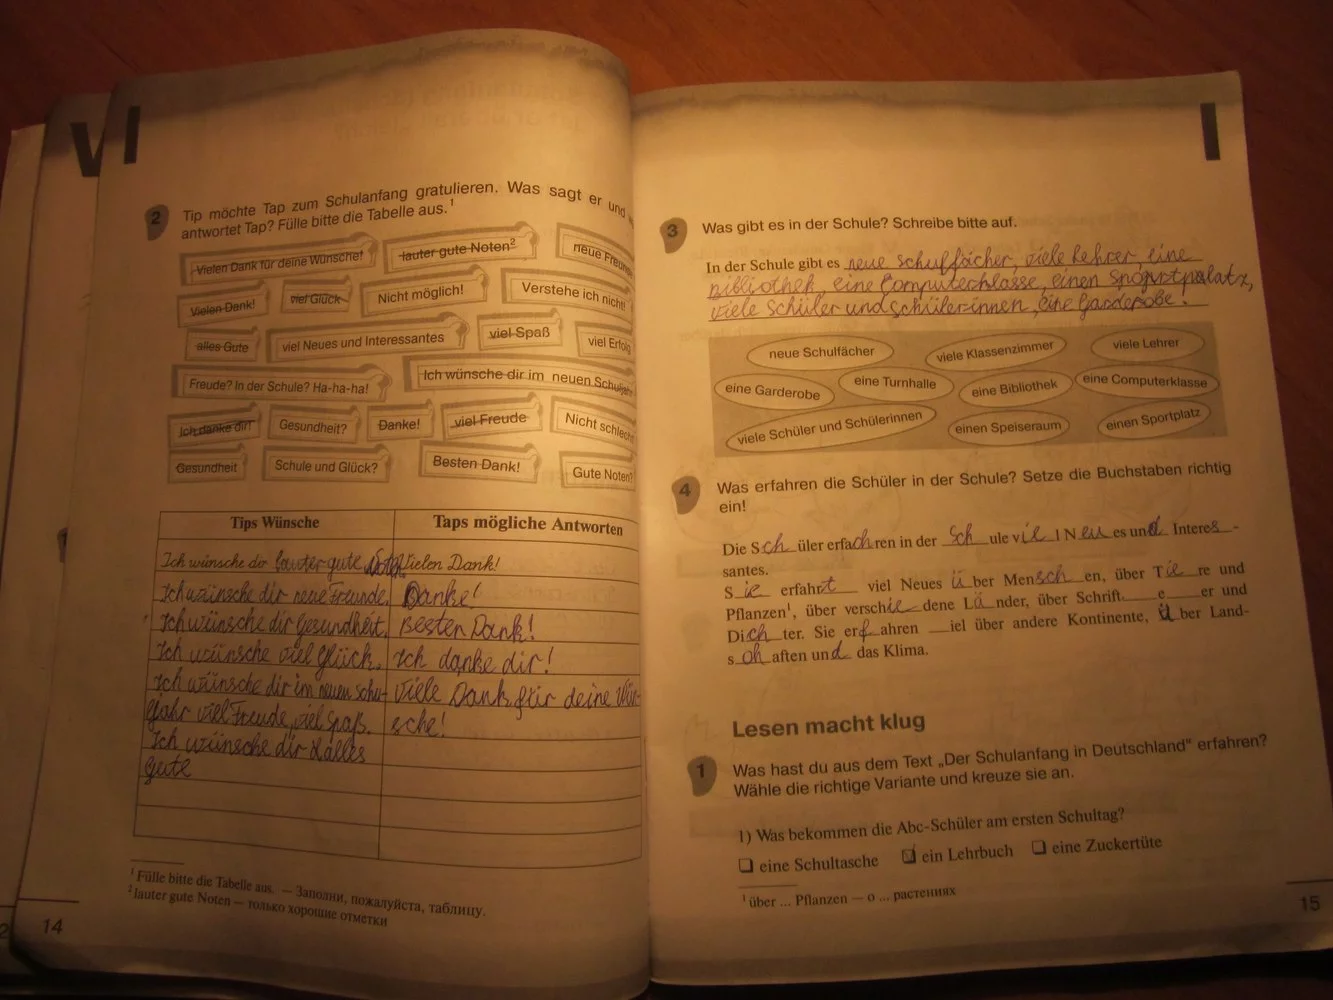 VI
2 Tip möchte Tap zum Schulanfang gratulieren. Was sagt er und
antwortet Tap? Fülle bitte die Tabelle aus.¹
Vielen Dank für deine Wünsche!
lauter gute Noten²
neue Freun
Vielen Dank!
viel Glück
Nicht möglich!
Verstehe ich nicht!
alles Gute
viel Neues und Interessantes
viel Spaß
viel Erfolg
Freude? In der Schule? Ha-ha-ha!
Ich wünsche dir im neuen Schuljahr
Ich danke dir!
Gesundheit?
Danke!
viel Freude
Nicht schlecht
Gesundheit
Schule und Glück?
Besten Dank!
Gute Noten?
Tips Wünsche
Taps mögliche Antworten
Ich wünsche dir lauter gute Vielen Dank!
Ich wünsche dir neue Freunde. Danke!
Ich wünsche dir Gesundheit. Besten Dank!
Ich wünsche viel Glück. Ich danke dir!
Ich wünsche dir im neuen Schu- Viele Dank für deine Wün-
ljahr viel Freude, viel Spaß. sche!
Ich wünsche dir alles
gute
¹ Fülle bitte die Tabelle aus. — Заполни, пожалуйста, таблицу.
² lauter gute Noten — только хорошие отметки
14
I
3 Was gibt es in der Schule? Schreibe bitte auf.
In der Schule gibt es neue schulfächer, viele Lehrer, eine
Bibliothek, eine Computerklasse, einen
viele Schüler und Schülerinnen, eine Garderobe.
neue Schulfächer
viele Klassenzimmer
viele Lehrer
eine Garderobe
eine Turnhalle
eine Bibliothek
eine Computerklasse
viele Schüler und Schülerinnen
einen Speiseraum
einen Sportplatz
4 Was erfahren die Schüler in der Schule? Setze die Buchstaben richtig
ein!
Die S ch üler erfa ch ren in der Sch ule v ie l N eu es un d Interes s -
santes.
S ie erfahr t viel Neues ü ber Men sch en, über T ie re und
Pflanzen¹, über versch ie dene L ä nder, über Schrift__ e __er und
Di ch ter. Sie er f ahren __iel über andere Kontinente, ü ber Land-
s ch aften un d das Klima.
Lesen macht klug
1 Was hast du aus dem Text „Der Schulanfang in Deutschland“ erfahren?
Wähle die richtige Variante und kreuze sie an.
1) Was bekommen die Abc-Schüler am ersten Schultag?
❑ eine Schultasche ☑ ein Lehrbuch ❑ eine Zuckertüte
¹ über ... Pflanzen — о ... растениях
15